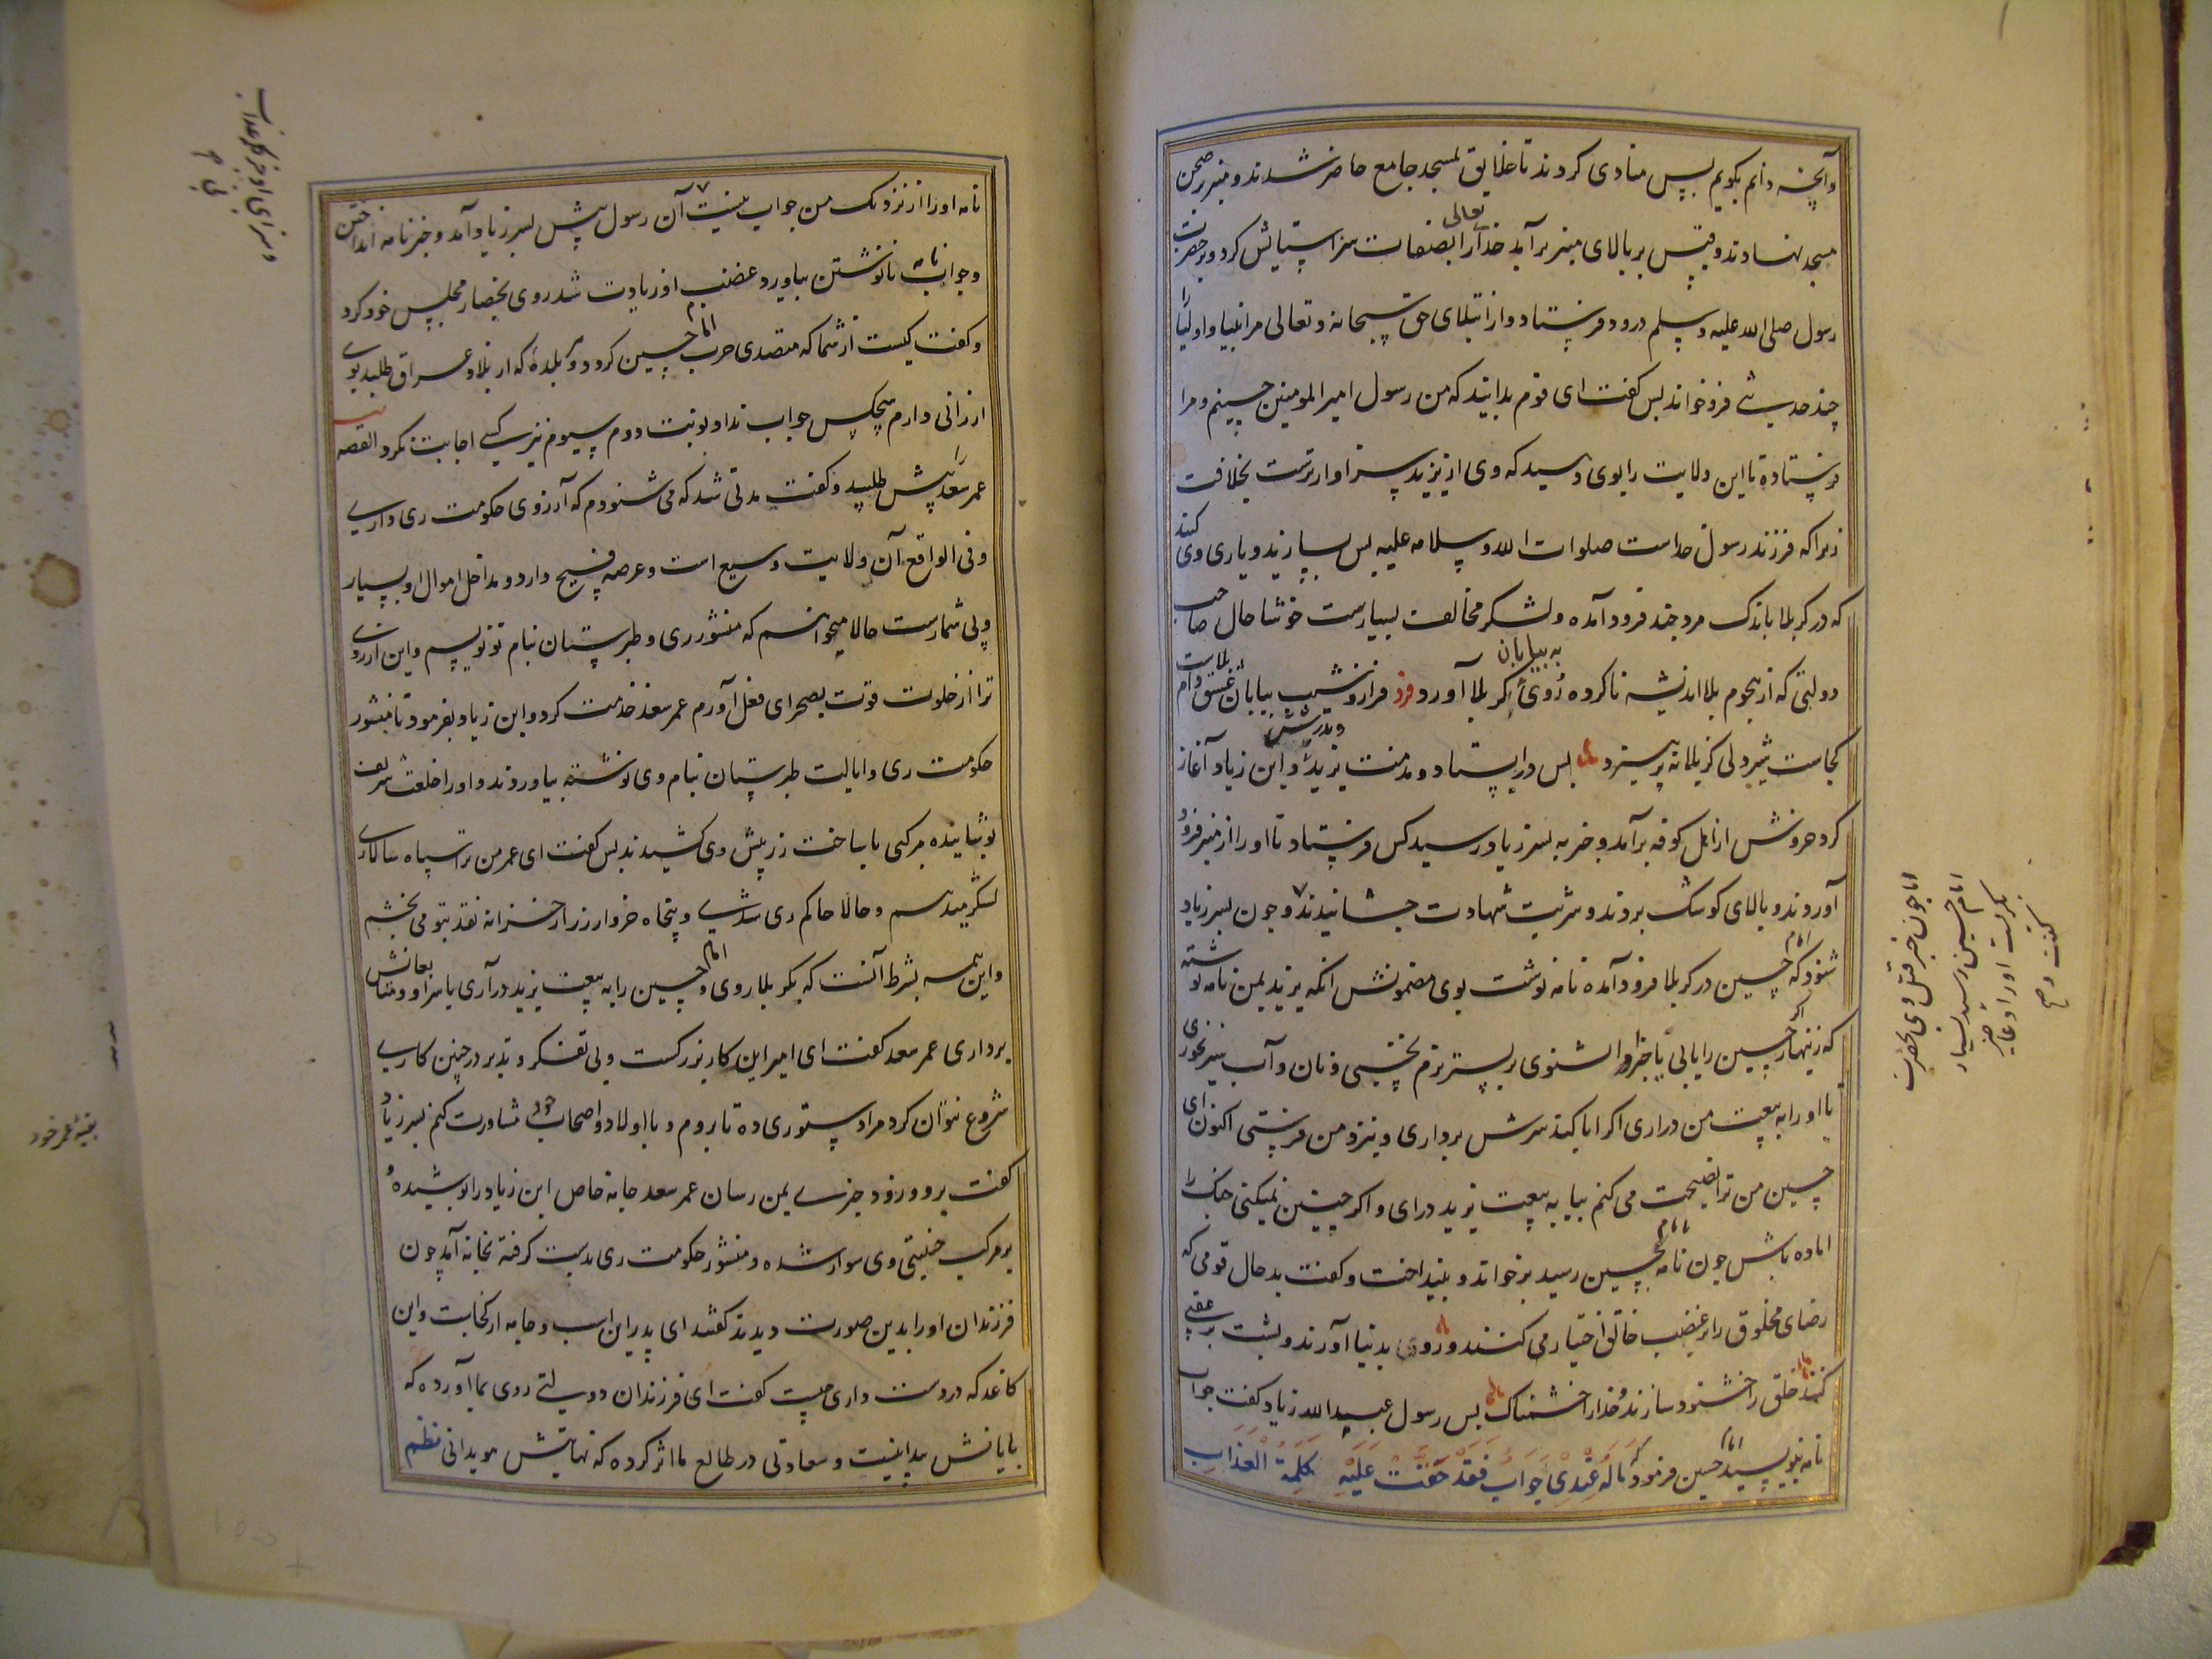 وآنچه دانم بگویم پس منادی کردند تا خلایق بمسجد جامع حاضر شدند و منبر بر صحن
مسجد نهادند و قیس بر بالای منبر برآمد خدا تعالی را بصفات سزا ستایش کرد و بر حضرت
رسول صلی الله علیه وسلم درود فرستاد و از ابتلای حق سبحانه و تعالی مر انبیا و اولیا را
چند حدیثی فرو خواند پس کفت ای قوم بدانید که من رسول امیر المومنین حسینم و مرا
فرستاده تا این ولایت را بوی دسید که وی از یزید سزاوارترست بخلافت
زیرا که فرزند رسول خداست صلوات الله وسلامه علیه پس بسازید و یاری وی کنید
که در کربلا باندک مردی چند فرود آمده و لشکر مخالف بسیارست خوشا حال صاحب
دولتی که از هجوم بلا اندیشه ناکرده روی به بیابان کربلا آورد فرد فراز و نشیب بیابان عشق دام بلاست
کجاست شیردلی کز بلا نپرهیزد پس در ایستاد و مذمت یزید و پدرش و ابن زیاد آغاز
کرد خروش از اهل کوفه برآمد و خبر به پسر زیاد رسید کس فرستاد تا او را از منبر فرود
آوردند و بالای کوشک بردند و شربت شهادت چشانیدند و چون پسر زیاد
شنود که امام حسین در کربلا فرود آمده نامه نوشت بوی مضمونش انکه یزید بمن نامه نوشته
که زنهار حسین را یابی بر بستر نرم نخسبی و نان و آب سیر نخوری
یا او را به بیعت من دراری اکر ابا کند سرش برداری و بنزد من فرستی اکنون ای
حسین من ترا نصیحت می کنم بیا به بیعت یزید درای و اکر چنین نمیکنی جنک را
اماده باش چون نامه بامام حسین رسید برخواند و بینداخت و کفت بدحال قومی که
رضای مخلوق را بر غضب خالق اختیار می کنند و روی بدنیا آورند و پشت بر عقبی
کنند خلق را خشنود سازند و خدا را خشمناک پس رسول عبیدالله زیاد کفت جواب
نامه بنویسید امام حسین فرمود که ما له عندی جواب فقد حقت علیه کلمة العذاب
اما چون خبر قتل وی بحضرت
امام حسین رسید بسیار
بکریست و او را دعای خیر
کفت صح
نامه او را از نزدیک من جواب نیست آن رسول پیش پسر زیاد آمد و خبر نامه انداختن
و جواب نامه نانوشتن بیاورد غضب او زیادت شد روی بحضار مجلس خود کرد
و کفت کیست از شما که متصدی حرب امام حسین کردد و هر بلده که از بلاد عراق طلبد بوی
ارزانی دارم هیچکس جواب نداد نوبت دوم و سیوم نیز کسی اجابت نکرد القصه
عمر سعد را پیش طلبید و کفت مدتی شد که می شنودم که آرزوی حکومت ری داری
و فی الواقع آن ولایت وسیع است و عرصه فسیح دارد و مداخل اموال او بسیار
و بی شمارست حالا میخواهم که منشور ری و طبرستان بنام تو نویسم و این ارزوی
ترا از خلوت قوت بصحرای فعل آورم عمر سعد خدمت کرد و ابن زیاد بفرمود تا منشور
حکومت ری و ایالت طبرستان بنام وی نوشته بیاوردند و او را خلعت شریف
پوشانیده مرکبی با ساخت زر پیش وی کشیدند پس کفت ای عمر من ترا سپاه سالاری
لشکر میدهم و حالا حاکم ری شدی و پنجاه خروار زر از خزانه نقد بتو می بخشم
و این همه بشرط آنست که بکربلا روی و امام حسین را به بیعت یزید درآری یا سر او و متابعانش
برداری عمر سعد کفت ای امیر این کار بزرکست و بی تفکر و تدبر در چنین کاری
شروع نتوان کرد مرا دستوری ده تا بروم و با اولاد و اصحاب خود مشاورت کنم پسر زیاد
کفت برو و زود خبری بمن رسان عمر سعد جامه خاص ابن زیاد را پوشیده و
بر مرکب جنیبتی وی سوار شده و منشور حکومت ری بدست کرفته بخانه آمد چون
فرزندان او را بدین صورت دیدند کفتند ای پدر این اسب و جامه از کجاست و این
کاغذ که در دست داری چیست کفت ای فرزندان دولتی روی بما آورده که
پایانش پیدا نیست و سعادتی در طالع ما اثر کرده که نهایتش هویدا نی نظم
و سزای او جز عذاب
نی صح